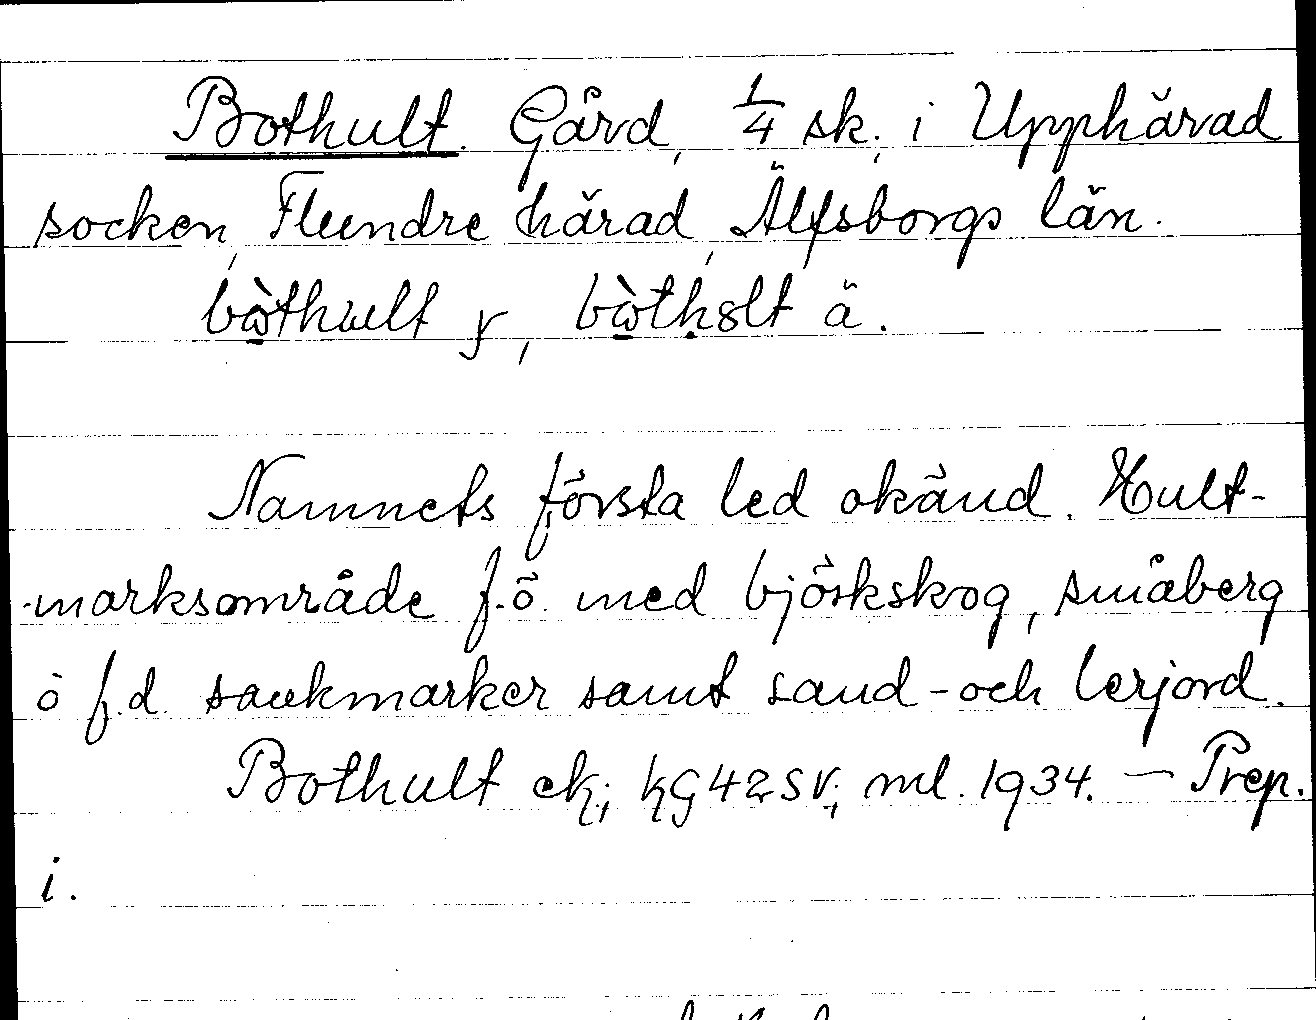 Bothult. Gård, 1/4 sk., i Upphärad
socken, Flundre härad, Älfsborgs län.
bòthult y, bòthslt ä.
Namnets första led okänd. Hult-
marksområde f.ö. med björkskog, småberg
o f.d. sankmarker samt sand- och lerjord.
Bothult ek; kg 42 SV; ml. 1934. — Prep.
i.